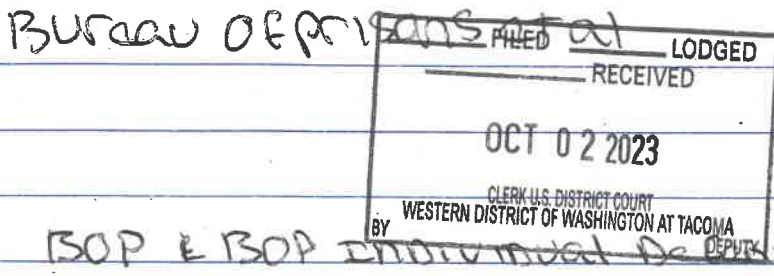 Bureau OF prisons et al
FILED LODGED
RECEIVED
OCT 02 2023
CLERK U.S. DISTRICT COURT
WESTERN DISTRICT OF WASHINGTON AT TACOMA
BY DEPUTY
BOP & BOP Individual